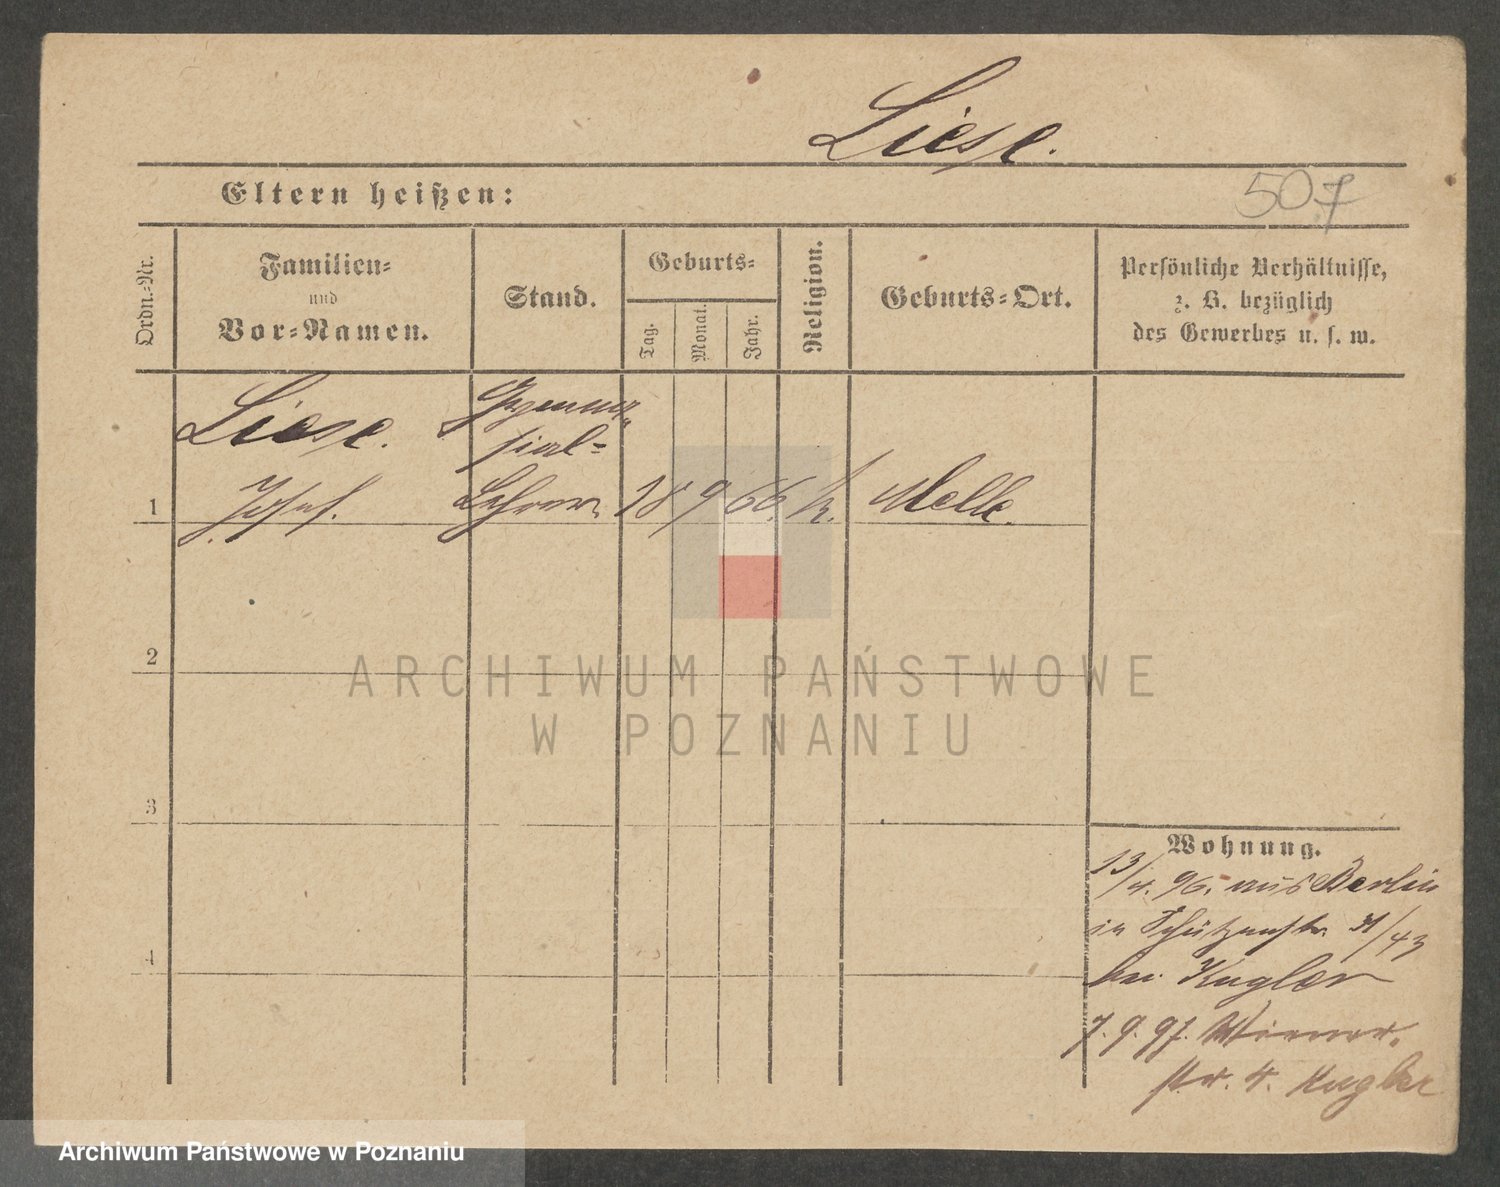 Liese.
Eltern heißen:
507
Ordn.-Nr.
Familien-
und
Vor-Namen.
Stand.
Geburts-
Tag.
Monat.
Jahr.
Religion.
Geburts-Ort.
Persönliche Verhältnisse,
z. B. bezüglich
des Gewerbes u. s. w.
Liese.
Gymna-
sial-
1 Josef. Lehrer. 18 9 66. k. Melle.
2
3
4
ARCHIWUM PAŃSTWOWE
W POZNANIU
Wohnung.
13/4. 96. aus Berlin
in Schützenstr. /43
bei Kugler
7. 9. 97. Wiener-
str. 4. Kugler
Archiwum Państwowe w Poznaniu